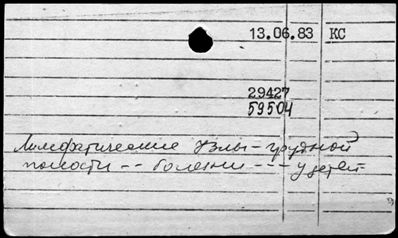 13.06.83 КС
29427
59504
Лимфатические узлы - грудной
полости - - болезни - - - у детей